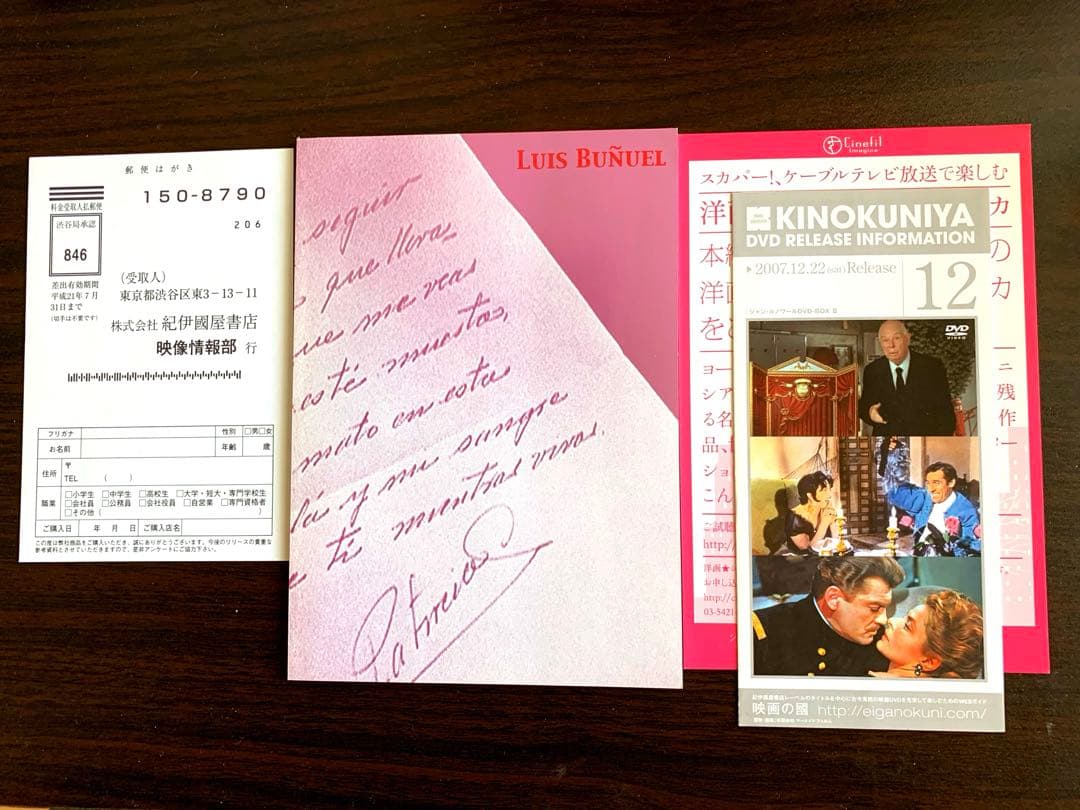 郵便はがき
料金受取人払郵便
渋谷局承認
846
差出有効期間
平成21年7月
31日まで
(切手は不要です)
150-8790
206
(受取人)
東京都渋谷区東3-13-11
株式会社 紀伊國屋書店
映像情報部 行
フリガナ
性別 □男□女
お名前
年齢 歳
住所 〒
TEL ( )
職業 □小学生 □中学生 □高校生 □大学・短大・専門学校生
□会社員 □公務員 □会社役員 □自営業 □専門資格者
□その他( )
ご購入日 年 月 日 ご購入店名
この度は弊社商品をご購入いただき、誠にありがとうございます。今後のリリースの貴重な
参考資料とさせていただきますので、是非アンケートにご協力下さい。
LUIS BUÑUEL
seguir
que lleva
ue me veas
esté muerto,
mato en esta
lá y mi sangre
e ti mientras vivas.
Cinefil
Imagica
スカパー!、ケーブルテレビ放送で楽しむ
洋 カ
本 の
洋 カ
を
ョー ニ
シア 残
る名 作
品、
ショ
こん
ご試聴
http:/
洋画★
お申し込
http://c
03-5421
KINOKUNIYA
DVD RELEASE INFORMATION
2007.12.22(sat)Release
12
ジャン・ルノワールDVD-BOX II
DVD
VIDEO
映画の國 http://eiganokuni.com/